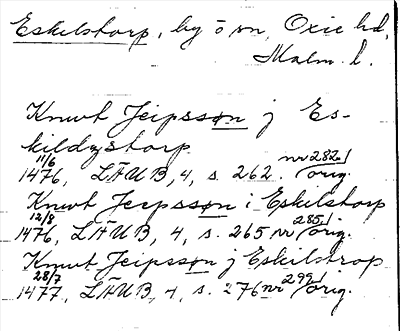 Eskilstorp, by o sn, Oxie hd,
Malm. l.
Knwt Jeipsson j Es-
kildzstorp
11/6 1476, LÄUB, 4, s. 262. nr 282. orig.
Knwt Jeepsson i Eskilstorp
12/8 1476, LÄUB, 4, s. 265 nr 285. orig.
Knwt Jeipsson j Eskilstrop
28/7 1477, LÄUB, 4, s. 276 nr 299. orig.